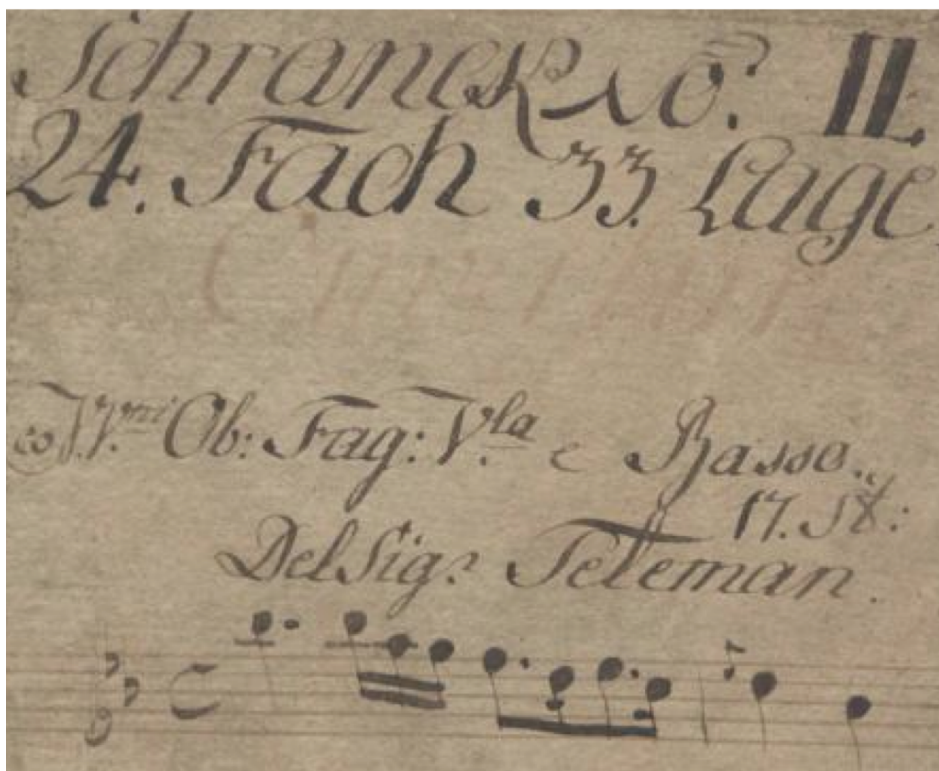 Schranck No. II.
24. Fach 33. Lage
VV.ni Ob: Fag: V.la e Basso.
17. St:
Del Sig.r Teleman.